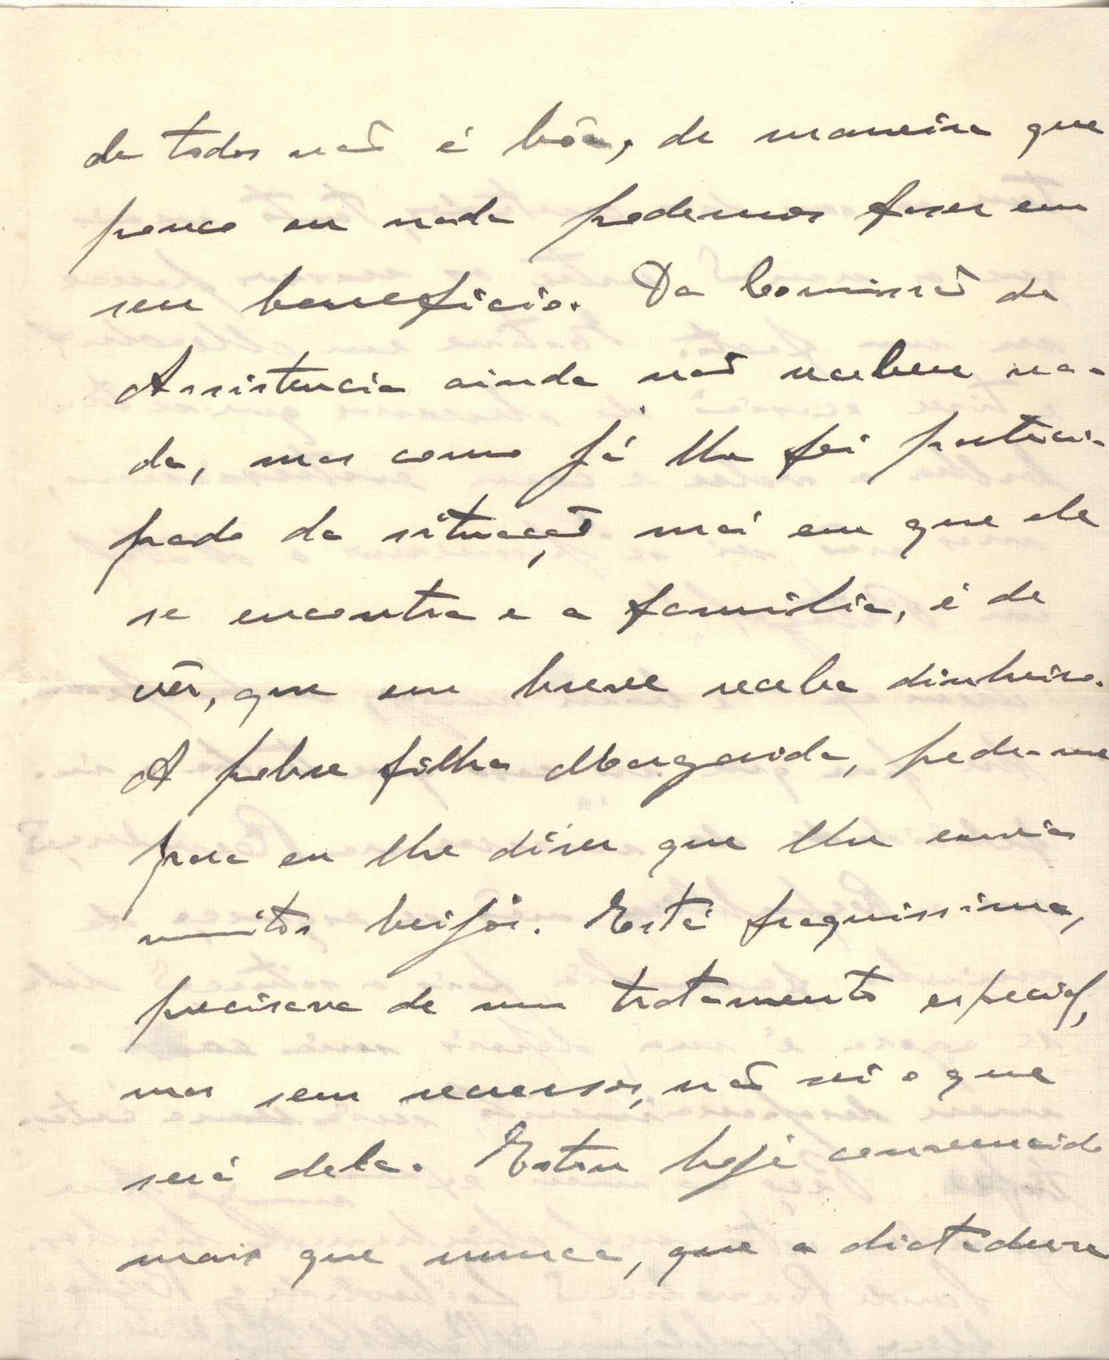 de todos não é bôa, de maneira que
pouco ou nada podemos faser em
seu beneficio. Da Comissão de
Assistencia ainda não recebeu na-
da, mas como já lhe foi partici-
pado da situação má em que ele
se encontra e a familia, é de
vêr, que em breve receba dinheiro.
A pobre filha Margarida, pede-me
para eu lhe diser que lhe envia
muitos beijos. Está fraquissima,
precisava de um tratamento especial,
mas sem recursos, não sei o que
será dela. Estou hoje convencido
mais que nunca, que a dictadura